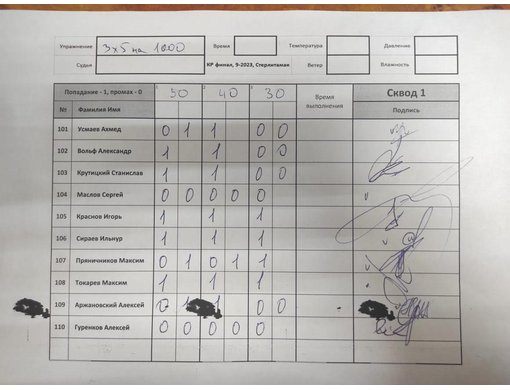 Упражнение 3x5 на 1000 Время Температура Давление
Судья КР финал, 9-2023, Стерлитамак Ветер Влажность
Попадание - 1, промах - 0 1 50 2 40 3 30 Время выполнения Сквод 1
№ Фамилия Имя Подпись
101 Усмаев Ахмед 0 1 1 0 0
102 Вольф Александр 1 1 0 0
103 Крутицкий Станислав 1 1 0 0
104 Маслов Сергей 0 0 0 0 0
105 Краснов Игорь 1 1 1
106 Сираев Ильнур 1 1 1
107 Пряничников Максим 0 1 0 1 1
108 Токарев Максим 1 1 1
109 Аржановский Алексей 0 1 1 0 0
110 Гуренков Алексей 0 0 0 0 0